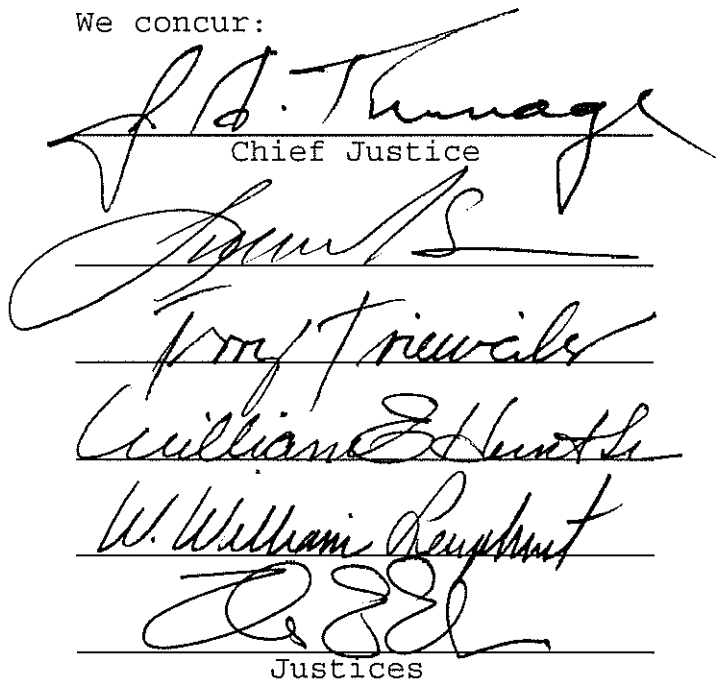 We concur:
J. A. Turnage
Chief Justice
Terry Trieweiler
William E Hunt Sr
W. William Leaphart
Justices